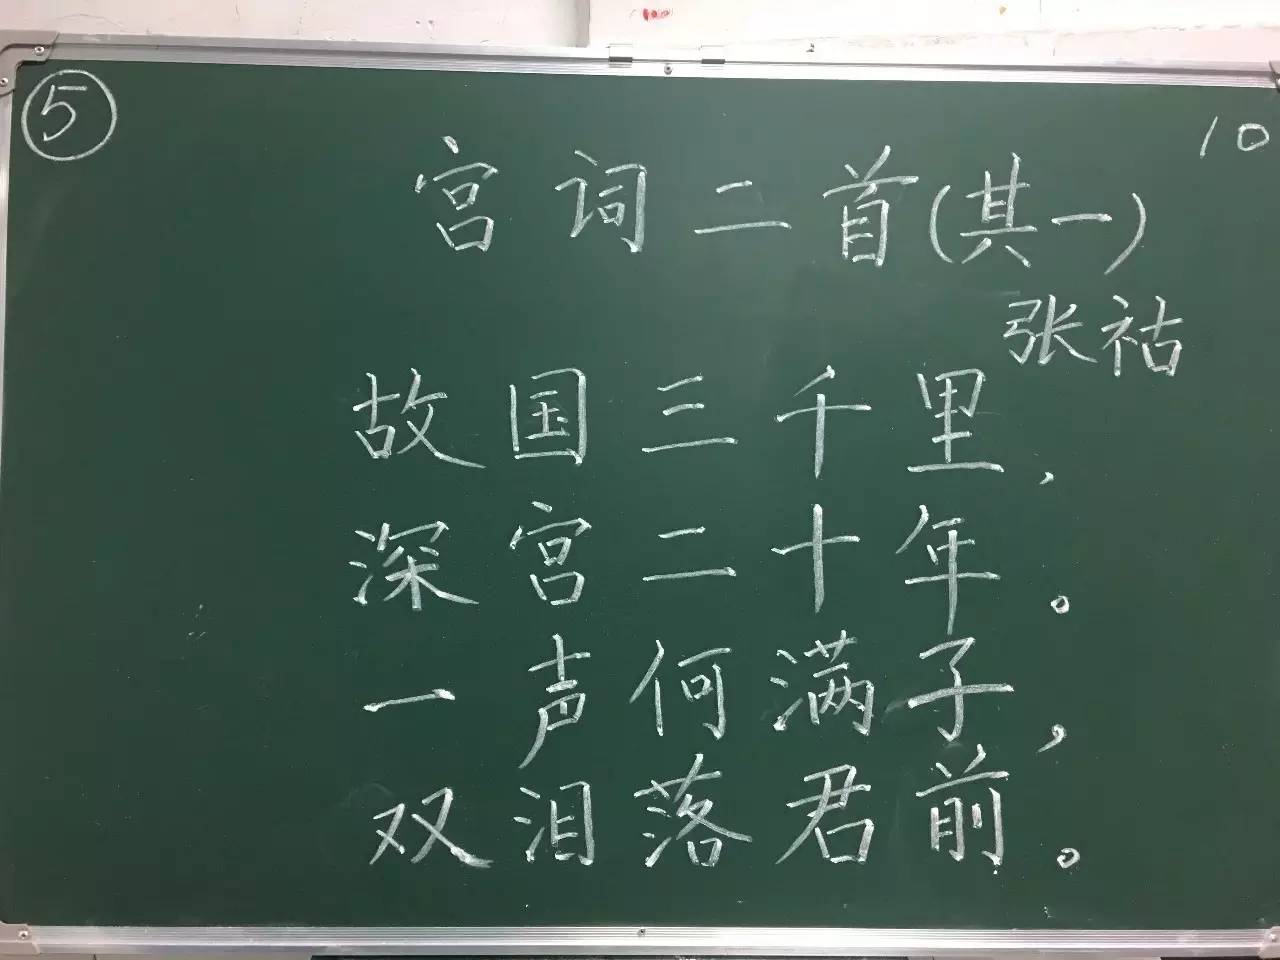 ⑤
10
宫词二首(其一)
张祜
故国三千里,
深宫二十年。
一声何满子,
双泪落君前。